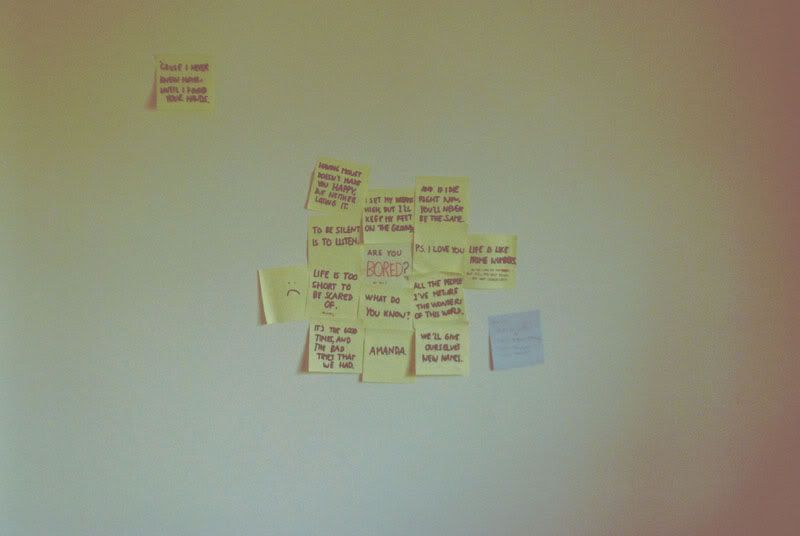 'CAUSE I NEVER
KNEW HOME,
UNTIL I FOUND
YOUR HANDS.
HAVING MONEY
DOESN'T MAKE
YOU HAPPY,
BUT NEITHER
LOSING IT.
I SET MY
HIGH, BUT I'LL
KEEP MY FEET
ON THE GROUND
AND IF I DIE
RIGHT NOW,
YOU'LL NEVER
BE THE SAME.
TO BE SILENT
IS TO LISTEN.
ARE YOU
BORED?
P.S. I LOVE YOU
LIFE IS LIKE
PRIME NUMBERS.
LIFE IS TOO
SHORT TO
BE SCARED
OF.
WHAT DO
YOU KNOW?
ALL THE PEOPLE
I'VE MET ARE
THE WONDERS
OF THIS WORLD.
IT'S THE GOOD
TIMES, AND
THE BAD
TIMES THAT
WE HAD.
AMANDA.
WE'LL GIVE
OURSELVES
NEW NAMES.